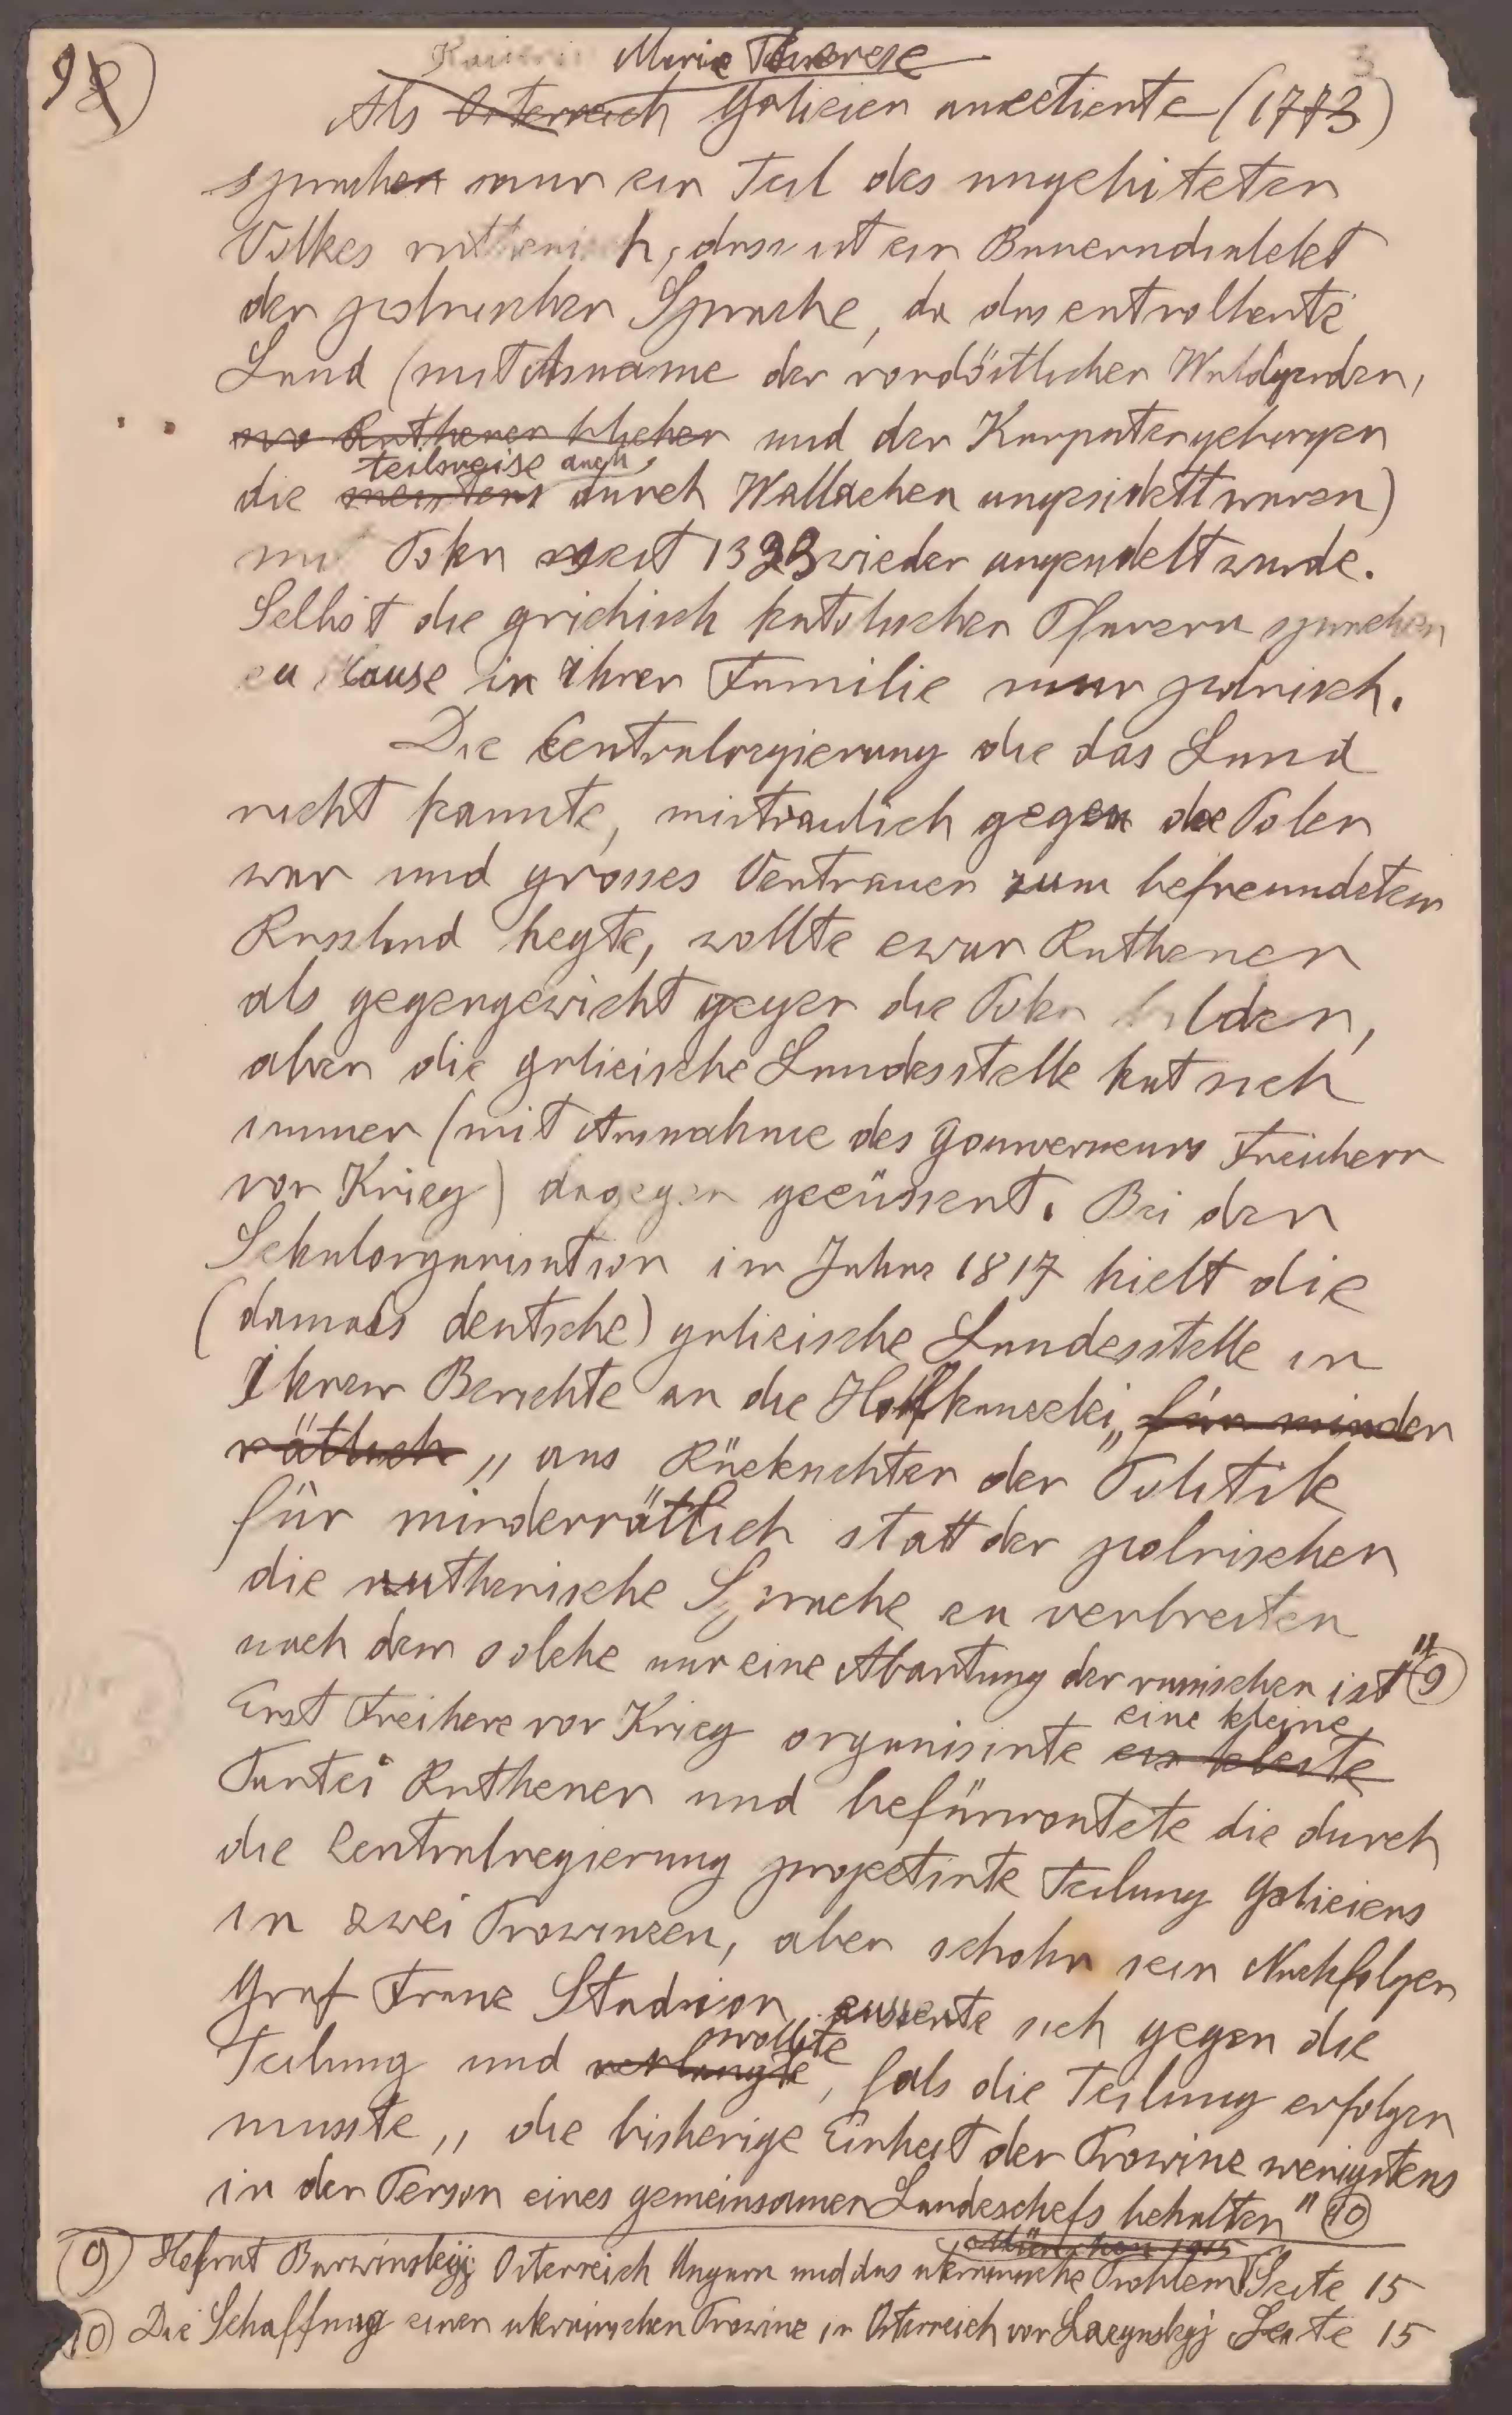 9 8)
Kaiserin Marie Therese
Als Österreich Galicien anectierte (1773)
sprachen nur ein Teil des ungebiteten
Volkes ruthenisch, dass ist ein Bauerndialekt
der polnischen Sprache, da das entvolkerte
Land (mit Ausname der nordöstlichen Waldgenden,
wo Ruthenen blieben und der Karpatengebirgen
teilsweise auch
die meistens durch Wallachen angesidelt waren)
mit Polen seit 1323 wieder angesidelt wurde.
Selbst die grichisch katolischen Pfarern sprachen
zu Hause in Ihrer Familie nur polnisch.
Die Centralregierung die das Land
nicht kannte, mistraulich gegen die Polen
war und grosses Vertrauen zum befreundeten
Russland hegte, wollte zwar Ruthenen
als gegengewicht gegen die Polen bilden,
aber die galizische Landesstelle hat sich
immer (mit Ausnahme des Gouverneurs Freiherr
von Krieg) dagegen geeüssert. Bei der
Schulorganisation im Jahre 1817 hielt die
(damals deutsche) galizische Landesstelle in
Ihren Berichte an die Hofkanzlei, für minder
rätlich „ aus Rücksichten der Politik
für minderrätlich statt der polnischen
die ruthenische Sprache zu verbreiten
nach dem solche nur eine Abartung der russischen ist" 9)
Erst Freiherr von Krieg organisirte ein kleine
eine kleine
Partei Ruthenen und befürwortete die durch
die Centralregierung projectirte Teilung Galiciens
in zwei Prowinzen, aber schohn sein Nachfolger
Graf Franz Stadion äusserte sich gegen die
wollte
Teilung und verlangte, fals die Teilung erfolgen
musste „ die bisherige Einheit der Prowinz wenigstens
in der Person eines gemeinsamen Landeschefs behalten" 10)
München 1915
9) Hofrat Barwinskyj Österreich Ungarn und das ukrainische Problem Seite 15
10) Die Schaffung einer ukrainischen Prowinz in Österreich von Lozynskyj Seite 15